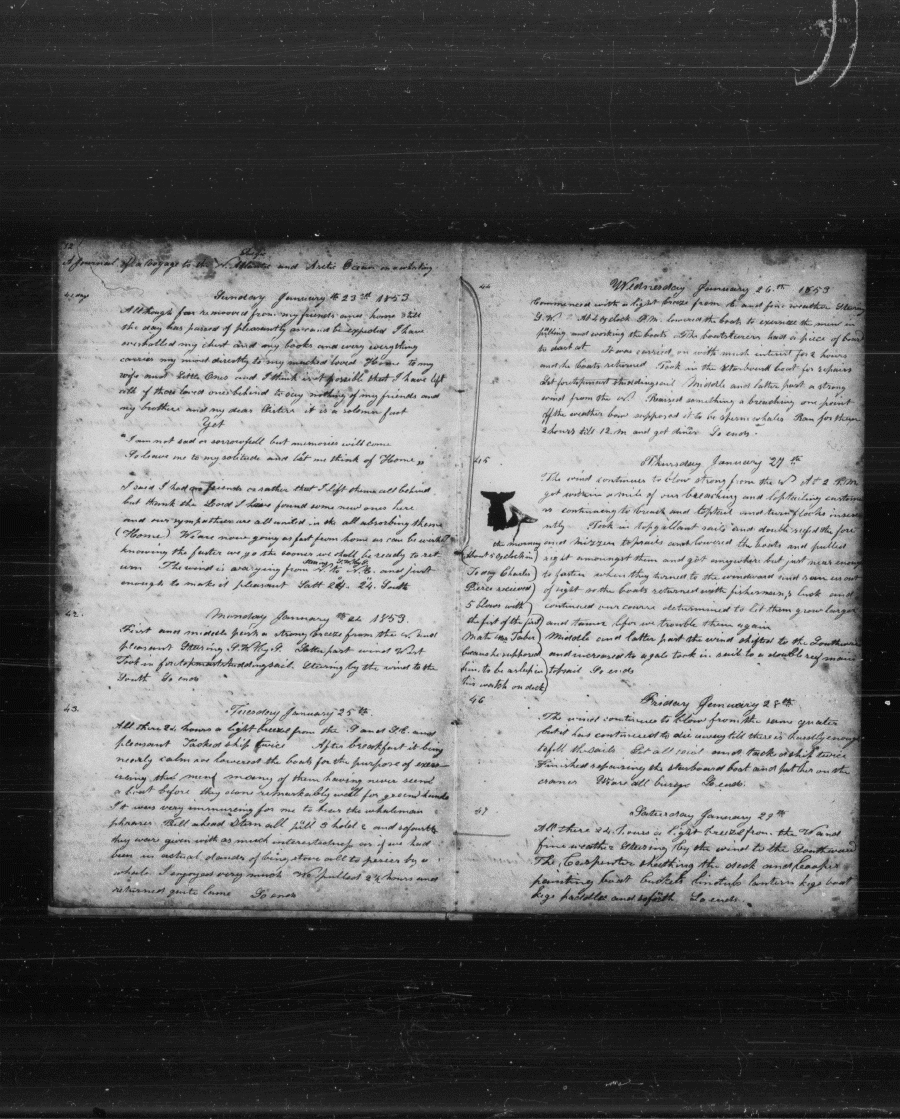 12
A Journal of a voyage to the N. Pacific and Arctic Ocean a whaling
41 day
Sunday January 23rd 1853
Although far removed from my friends and home still
the day has passed of pleasantly as could be expected I have
overhalled my chest and my books and every everything
carries my mind directly to my much loved Home to my
wife and Little Ones and I think is it possible that I have left
all of those loved ones behind to say nothing of my friends and
my brothers and my dear sisters it is a solemn fact
Yet
"I am not sad or sorrowfull but memories will come
So leave me to my solitude and let me think of Home"
I said I had no friends or rather that I left them all behind
but thank the Lord I have found some new ones here
and our sympathies are all united in the all absorbing theme
(Home) We are now going as fast from home as can be
knowing the faster we go the sooner we shall be ready to ret
urn The wind is varying from to N.E. and just
enough to make it pleasant Latt 24. South
42.
Monday January 24 1853.
First and middle part a strong breeze from the and
pleasant Stearing S.W. by S. Latter part wind West
Took in foretopmast studdingsail. Stearing by the wind to the
South So ends
43.
Tuesday January 25th
All these 24 hours a light breeze from the S and S.E. and
pleasant Tacked ship twice After breakfast it being
nearly calm we lowered the boats for the purpose of exer-
cising the men many of them having never seend
a boat before they done remarkably well for green hands
It was very ammusing for me to hear the whaleman
phrases Pull ahead Stern all pull 3 hold 2 and soforth
they ware given with as much interest as if we had
been in actual danger of being stove all to peaces by a
whale. I enjoyed very much We pulled 2½ hours and
returned quite lame So ends
44
Wednesday January 26th 1853
Commenced with a light breeze from the and fine weather Stearing
S.W. At 4 o'clock P.M. lowered the boats to exercise the men in
pulling and working the boats The boatsteerers had a piece of board
to dart at. It was carried on with much interest for 2 hours
and the boats returned. Took in the Starboard boat for repairs
Set foretopmast studdingsail Middle and latter part a strong
wind from the N. Raised something a breaching one point
off the weather bow supposed it to be sperm whales Ran for them
2 hours till 12. M and got diner So ends.
45
Thursday January 27th
The wind continues to blow strong from the N At 2 P.M.
got within a mile of our breaching and loptailing customers
continuing to breach and loptail and turn flooks incess
antly. Took in topgallant sails and double reefed the fore
and mizzen topsails and lowered the boats and pulled
right amoungst them and got anywhere but just near enough
to fasten when they turned to the windward and ran us out
of sight so the boats returned with fisherman,s luck and
continued our course determined to let them grow larger
and tamer before we trouble them again
Middle and latter part the wind shifted to the Southward
and increased to a gale took in sail to a double reef main
topsail. So ends
the morning
about 5 o,clock in
To day Charles
Pierce received
5 blows with
the fist of the first
Mate Mr Taber
because he supposed
him to be asleep in
his watch on deck
46
Friday January 28th
The wind continues to blow from the same quarter
but has continued to die away till there is hardly enough
to fill the sails Set all sail and tacked ship twice
Finished repairing the starboard boat and put her on the
cranes. Ware all buisy So ends.
47
Saturday January 29th
All these 24 hours a light breeze from the W and
fine weather Stearing by the wind to the Southward
The Carpenter sheathing the deck and Cooper
painting boat buckets lantern kegs boat
kegs paddles and soforth So ends.